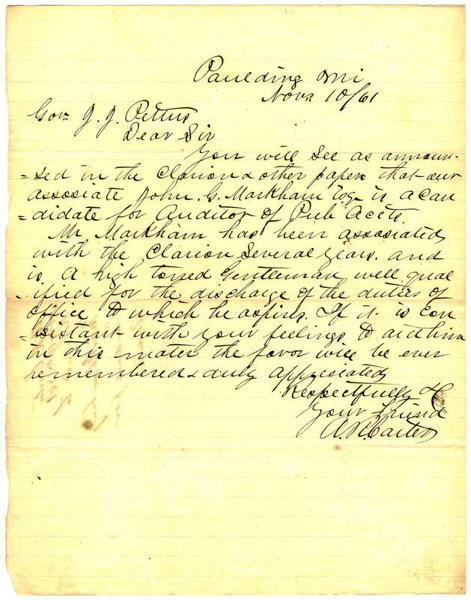 Paulding Mi
Novr 10/61
Gov. J. J. Pettus
Dear Sir
You will see as announ-
-sed in the Clarion & other papers that our
assosiate John G. Markham Esq is a can
-didate for Auditor of Pub Accts.
Mr Markham has been assosiated
with the Clarion Several years. and
is A high toned Gentleman well qual
-ified for the discharge of the duties of
office to which he aspires. If it is con
-sistant with your feelings to aid him
in this mater the favor will be ever
remembered & duly appresiated
Respectfully &c
Your friend
Carter